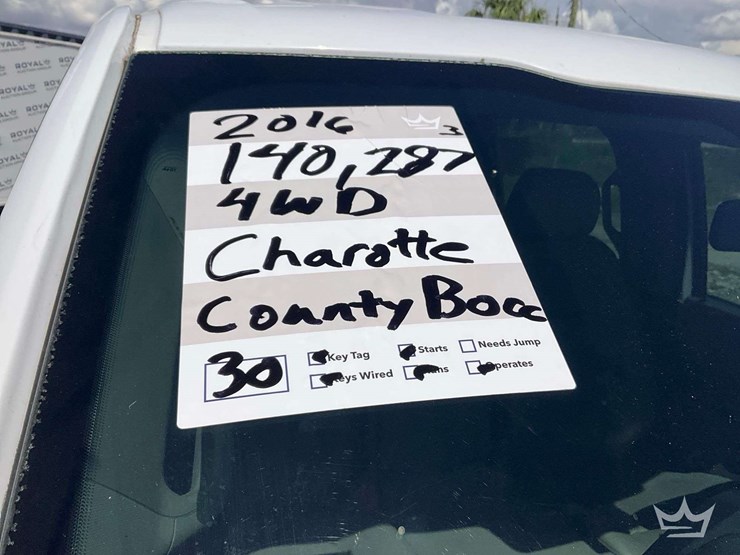 2016
3
140,287
4WD
Charotte
County Bocc
30
Key Tag
Starts
Needs Jump
Keys Wired
Runs
Operates
ROYAL
ROYAL
ROYAL
ROYAL